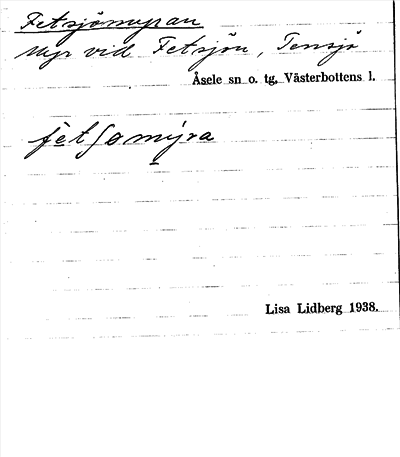 Fetsjömyran
Myr vid Fetsjön, Tensjö
Åsele sn o. tg, Västerbottens l.
fetʃomyra
Lisa Lidberg 1938.